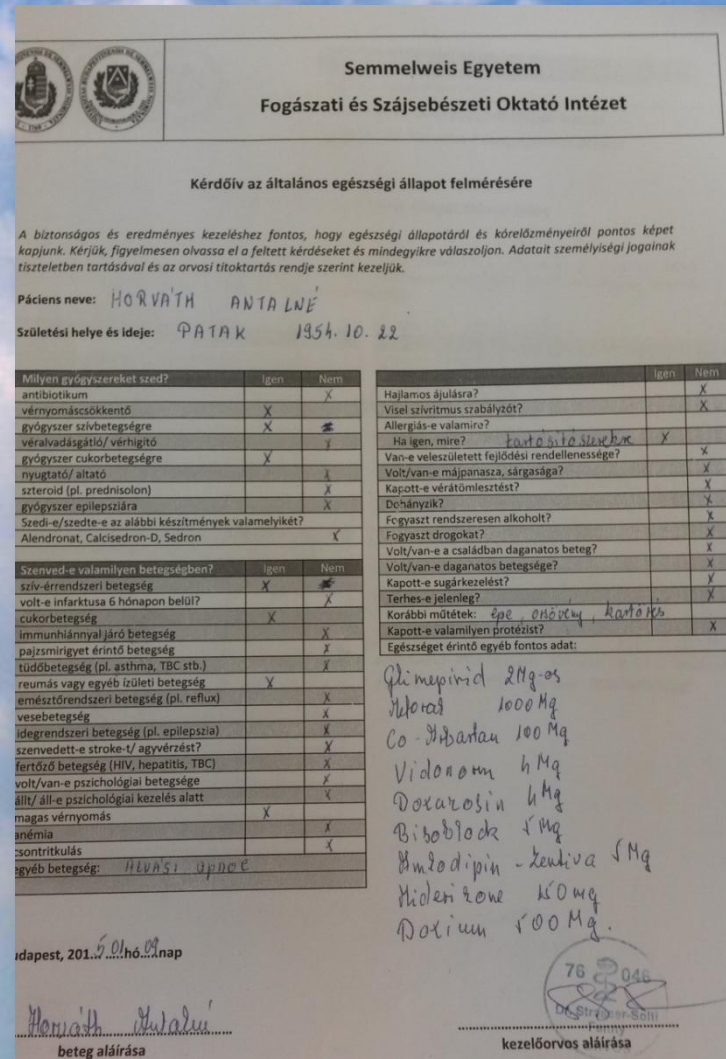 Semmelweis Egyetem
Fogászati és Szájsebészeti Oktató Intézet
Kérdőív az általános egészségi állapot felmérésére
A biztonságos és eredményes kezeléshez fontos, hogy egészségi állapotáról és kórelőzményeiről pontos képet
kapjunk. Kérjük, figyelmesen olvassa el a feltett kérdéseket és mindegyikre válaszoljon. Adatait személyiségi jogainak
tiszteletben tartásával és az orvosi titoktartás rendje szerint kezeljük.
Páciens neve: HORVÁTH ANTALNÉ
Születési helye és ideje: PATAK 1954. 10. 22
Milyen gyógyszereket szed? Igen Nem
antibiotikum X
vérnyomáscsökkentő X
gyógyszer szívbetegségre X
véralvadásgátló/ vérhigító X
gyógyszer cukorbetegségre X
nyugtató/ altató X
szteroid (pl. prednisolon) X
gyógyszer epilepsziára X
Szedi-e/szedte-e az alábbi készítmények valamelyikét?
Alendronat, Calcisedron-D, Sedron X
Szenved-e valamilyen betegségben? Igen Nem
szív-érrendszeri betegség X
volt-e infarktusa 6 hónapon belül? X
cukorbetegség X
immunhiánnyal járó betegség X
pajzsmirigyet érintő betegség X
tüdőbetegség (pl. asthma, TBC stb.) X
reumás vagy egyéb ízületi betegség X
emésztőrendszeri betegség (pl. reflux) X
vesebetegség X
idegrendszeri betegség (pl. epilepszia) X
szenvedett-e stroke-t/ agyvérzést? X
fertőző betegség (HIV, hepatitis, TBC) X
volt/van-e pszichológiai betegsége X
állt/ áll-e pszichológiai kezelés alatt X
magas vérnyomás X
anémia X
csontritkulás X
egyéb betegség: ALVÁSI apnoe
Igen Nem
Hajlamos ájulásra? X
Visel szívritmus szabályzót? X
Allergiás-e valamire?
Ha igen, mire? tartósítószerekre X
Van-e veleszületett fejlődési rendellenessége? X
Volt/van-e májpanasza, sárgasága? X
Kapott-e vérátömlesztést? X
Dohányzik? X
Fogyaszt rendszeresen alkoholt? X
Fogyaszt drogokat? X
Volt/van-e a családban daganatos beteg? X
Volt/van-e daganatos betegsége? X
Kapott-e sugárkezelést? X
Terhes-e jelenleg? X
Korábbi műtétek: epe,
Kapott-e valamilyen protézist? X
Egészséget érintő egyéb fontos adat:
Glimepirid 2Mg-os
1000 Mg
100 Mg
Vidonorm 4 Mg
Doxarosin 4 Mg
Bisoblock 5 Mg
Amlodipin - Zentiva 5 Mg
Miderizone 150 mg
Doxium 500 Mg.
udapest, 201.5.01.hó.09.nap
Horváth Antalné
beteg aláírása
76 046
kezelőorvos aláírása